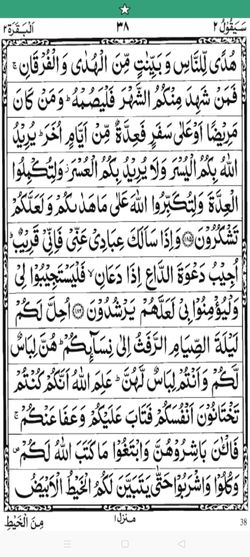 سَيَقُوۡلُ ٢ ٣٨ اَلۡبَقَرَة ٢
هُدًى لِّلنَّاسِ وَ بَيِّنٰتٍ مِّنَ الۡهُدٰى وَ الۡفُرۡقَانِۚ
فَمَنۡ شَهِدَ مِنۡكُمُ الشَّهۡرَ فَلۡيَصُمۡهُؕ وَ مَنۡ كَانَ
مَرِيۡضًا اَوۡ عَلٰى سَفَرٍ فَعِدَّةٌ مِّنۡ اَيَّامٍ اُخَرَؕ يُرِيۡدُ
اللّٰهُ بِكُمُ الۡيُسۡرَ وَلَا يُرِيۡدُ بِكُمُ الۡعُسۡرَ وَلِتُكۡمِلُوا
الۡعِدَّةَ وَلِتُكَبِّرُوا اللّٰهَ عَلٰى مَا هَدٰٮكُمۡ وَلَعَلَّكُمۡ
تَشۡكُرُوۡنَ ﴿١٨٥﴾ وَاِذَا سَاَلَكَ عِبَادِىۡ عَنِّىۡ فَاِنِّىۡ قَرِيۡبٌؕ
اُجِيۡبُ دَعۡوَةَ الدَّاعِ اِذَا دَعَانِۙ فَلۡيَسۡتَجِيۡبُوۡا لِىۡ
وَلۡيُؤۡمِنُوۡا بِىۡ لَعَلَّهُمۡ يَرۡشُدُوۡنَ ﴿١٨٦﴾ اُحِلَّ لَكُمۡ
لَيۡلَةَ الصِّيَامِ الرَّفَثُ اِلٰى نِسَآٮِٕكُمۡؕ هُنَّ لِبَاسٌ
لَّكُمۡ وَاَنۡتُمۡ لِبَاسٌ لَّهُنَّؕ عَلِمَ اللّٰهُ اَنَّكُمۡ كُنۡتُمۡ
تَخۡتَانُوۡنَ اَنۡفُسَكُمۡ فَتَابَ عَلَيۡكُمۡ وَعَفَا عَنۡكُمۡۚ
فَالۡـٰٔنَ بَاشِرُوۡهُنَّ وَابۡتَغُوۡا مَا كَتَبَ اللّٰهُ لَكُمۡ
وَكُلُوۡا وَاشۡرَبُوۡا حَتّٰى يَتَبَيَّنَ لَكُمُ الۡخَيۡطُ الۡاَبۡيَضُ
مِنَ الۡخَيۡطِ منزل ١ 38